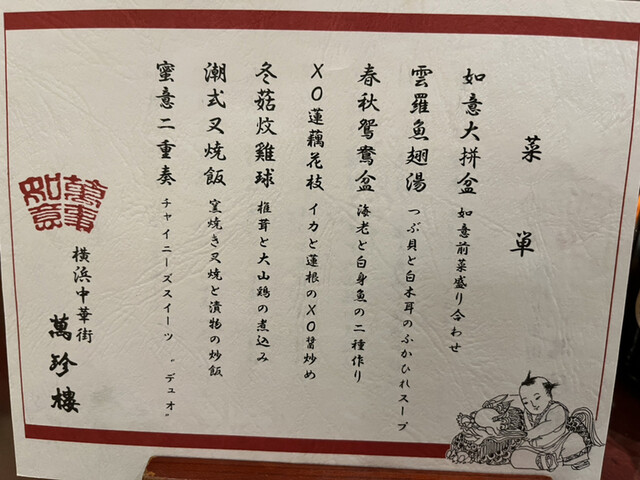 菜単
如意大拼盆 如意前菜盛り合わせ
雲羅魚翅湯 つぶ貝と白木耳のふかひれスープ
春秋鴛鴦盆 海老と白身魚の二種作り
XO蓮藕花枝 イカと蓮根のXO醤炒め
冬菇炆雞球 椎茸と大山鶏の煮込み
潮式叉焼飯 窯焼き叉焼と漬物の炒飯
蜜意二重奏 チャイニーズスイーツ "デュオ"
萬事如意
横浜中華街
萬珍樓